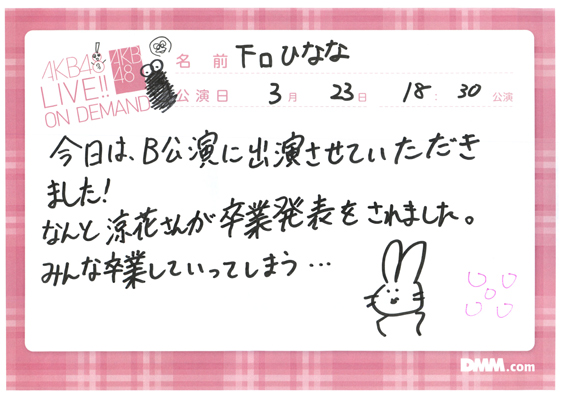 AKB48
LIVE!!
ON DEMAND
AKB
48
名前 下口ひなな
公演日 3月 23日 18:30公演
今日は、B公演に出演させていただき
ました!
なんと涼花さんが卒業発表をされました。
みんな卒業していってしまう…
DMM.com